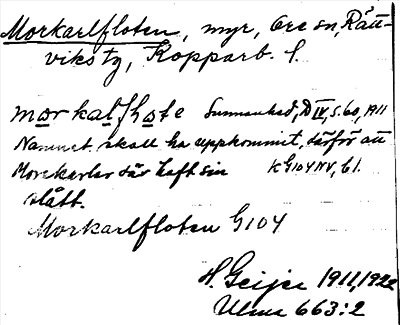 Morkarlfloten, myr, Ore sn, Rätt-
viks tg, Kopparb. l.
morkalfłote Sunnanhed, D IV, s. 60, 1911
Namnet skall ha uppkommit, därför att
Morekarlar där haft sin K G104 NV, bl.
slått.
Morkarlfloten G104
H. Geijer 1911, 1922
Ulma 663:2